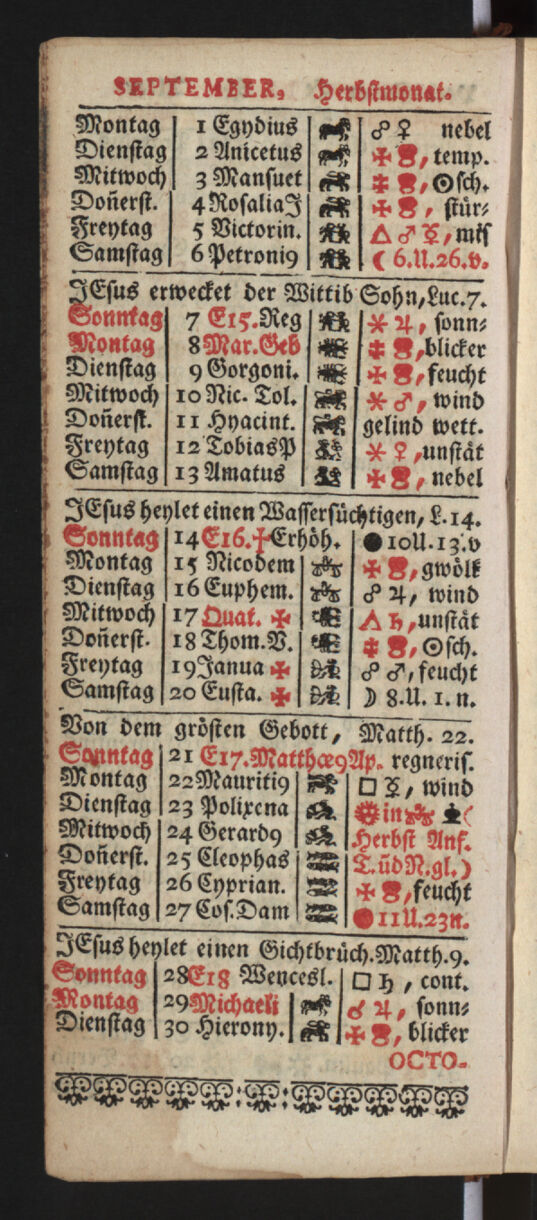 SEPTEMBER, Herbstmonat.
Montag 1 Egydius ♂ ♀ nebel
Dienstag 2 Anicetus temp.
Mitwoch 3 Mansuet ☉sch.
Don̄erst. 4 RosaliaJ stür⸗
Freytag 5 Victorin. △ ♂ ☿, mis
Samstag 6 Petroni9 ☾ 6.U.26.v.
JEsus erwecket der Wittib Sohn, Luc.7.
Sonntag 7 E15.Reg ⚹ ♃, sonn⸗
Montag 8 Mar.Geb blicker
Dienstag 9 Gorgoni. feucht
Mitwoch 10 Nic. Tol. ⚹ ♂, wind
Don̄erst. 11 Hyacint. gelind wett.
Freytag 12 TobiasP ⚹ ♀, unstät
Samstag 13 Amatus nebel
JEsus heylet einen Wassersüchtigen, L.14.
Sonntag 14 E16.✝Erhöh. ● 10U.13.v
Montag 15 Nicodem gwölk
Dienstag 16 Euphem. ☍ ♃, wind
Mitwoch 17 Quat. ✠ △ ♄, unstät
Don̄erst. 18 Thom.V. ☉sch.
Freytag 19 Janua ✠ ☍ ♂, feucht
Samstag 20 Eusta. ✠ ☽ 8.U. 1. n.
Von dem grösten Gebott, Matth. 22.
Sonntag 21 E17.Matthæ9Ap. regneris.
Montag 22 Mauriti9 □ ☿, wind
Dienstag 23 Polixena in ♎
Mitwoch 24 Gerard9 Herbst Anf.
Don̄erst. 25 Cleophas T.ūdN.gl.)
Freytag 26 Cyprian. feucht
Samstag 27 Cos.Dam 11U.23n.
JEsus heylet einen Gichtbrüch.Matth.9.
Sonntag 28 E18 Wencesl. □ ♄, cont.
Montag 29 Michaeli ☌ ♃, sonn⸗
Dienstag 30 Hierony. blicker
OCTO-